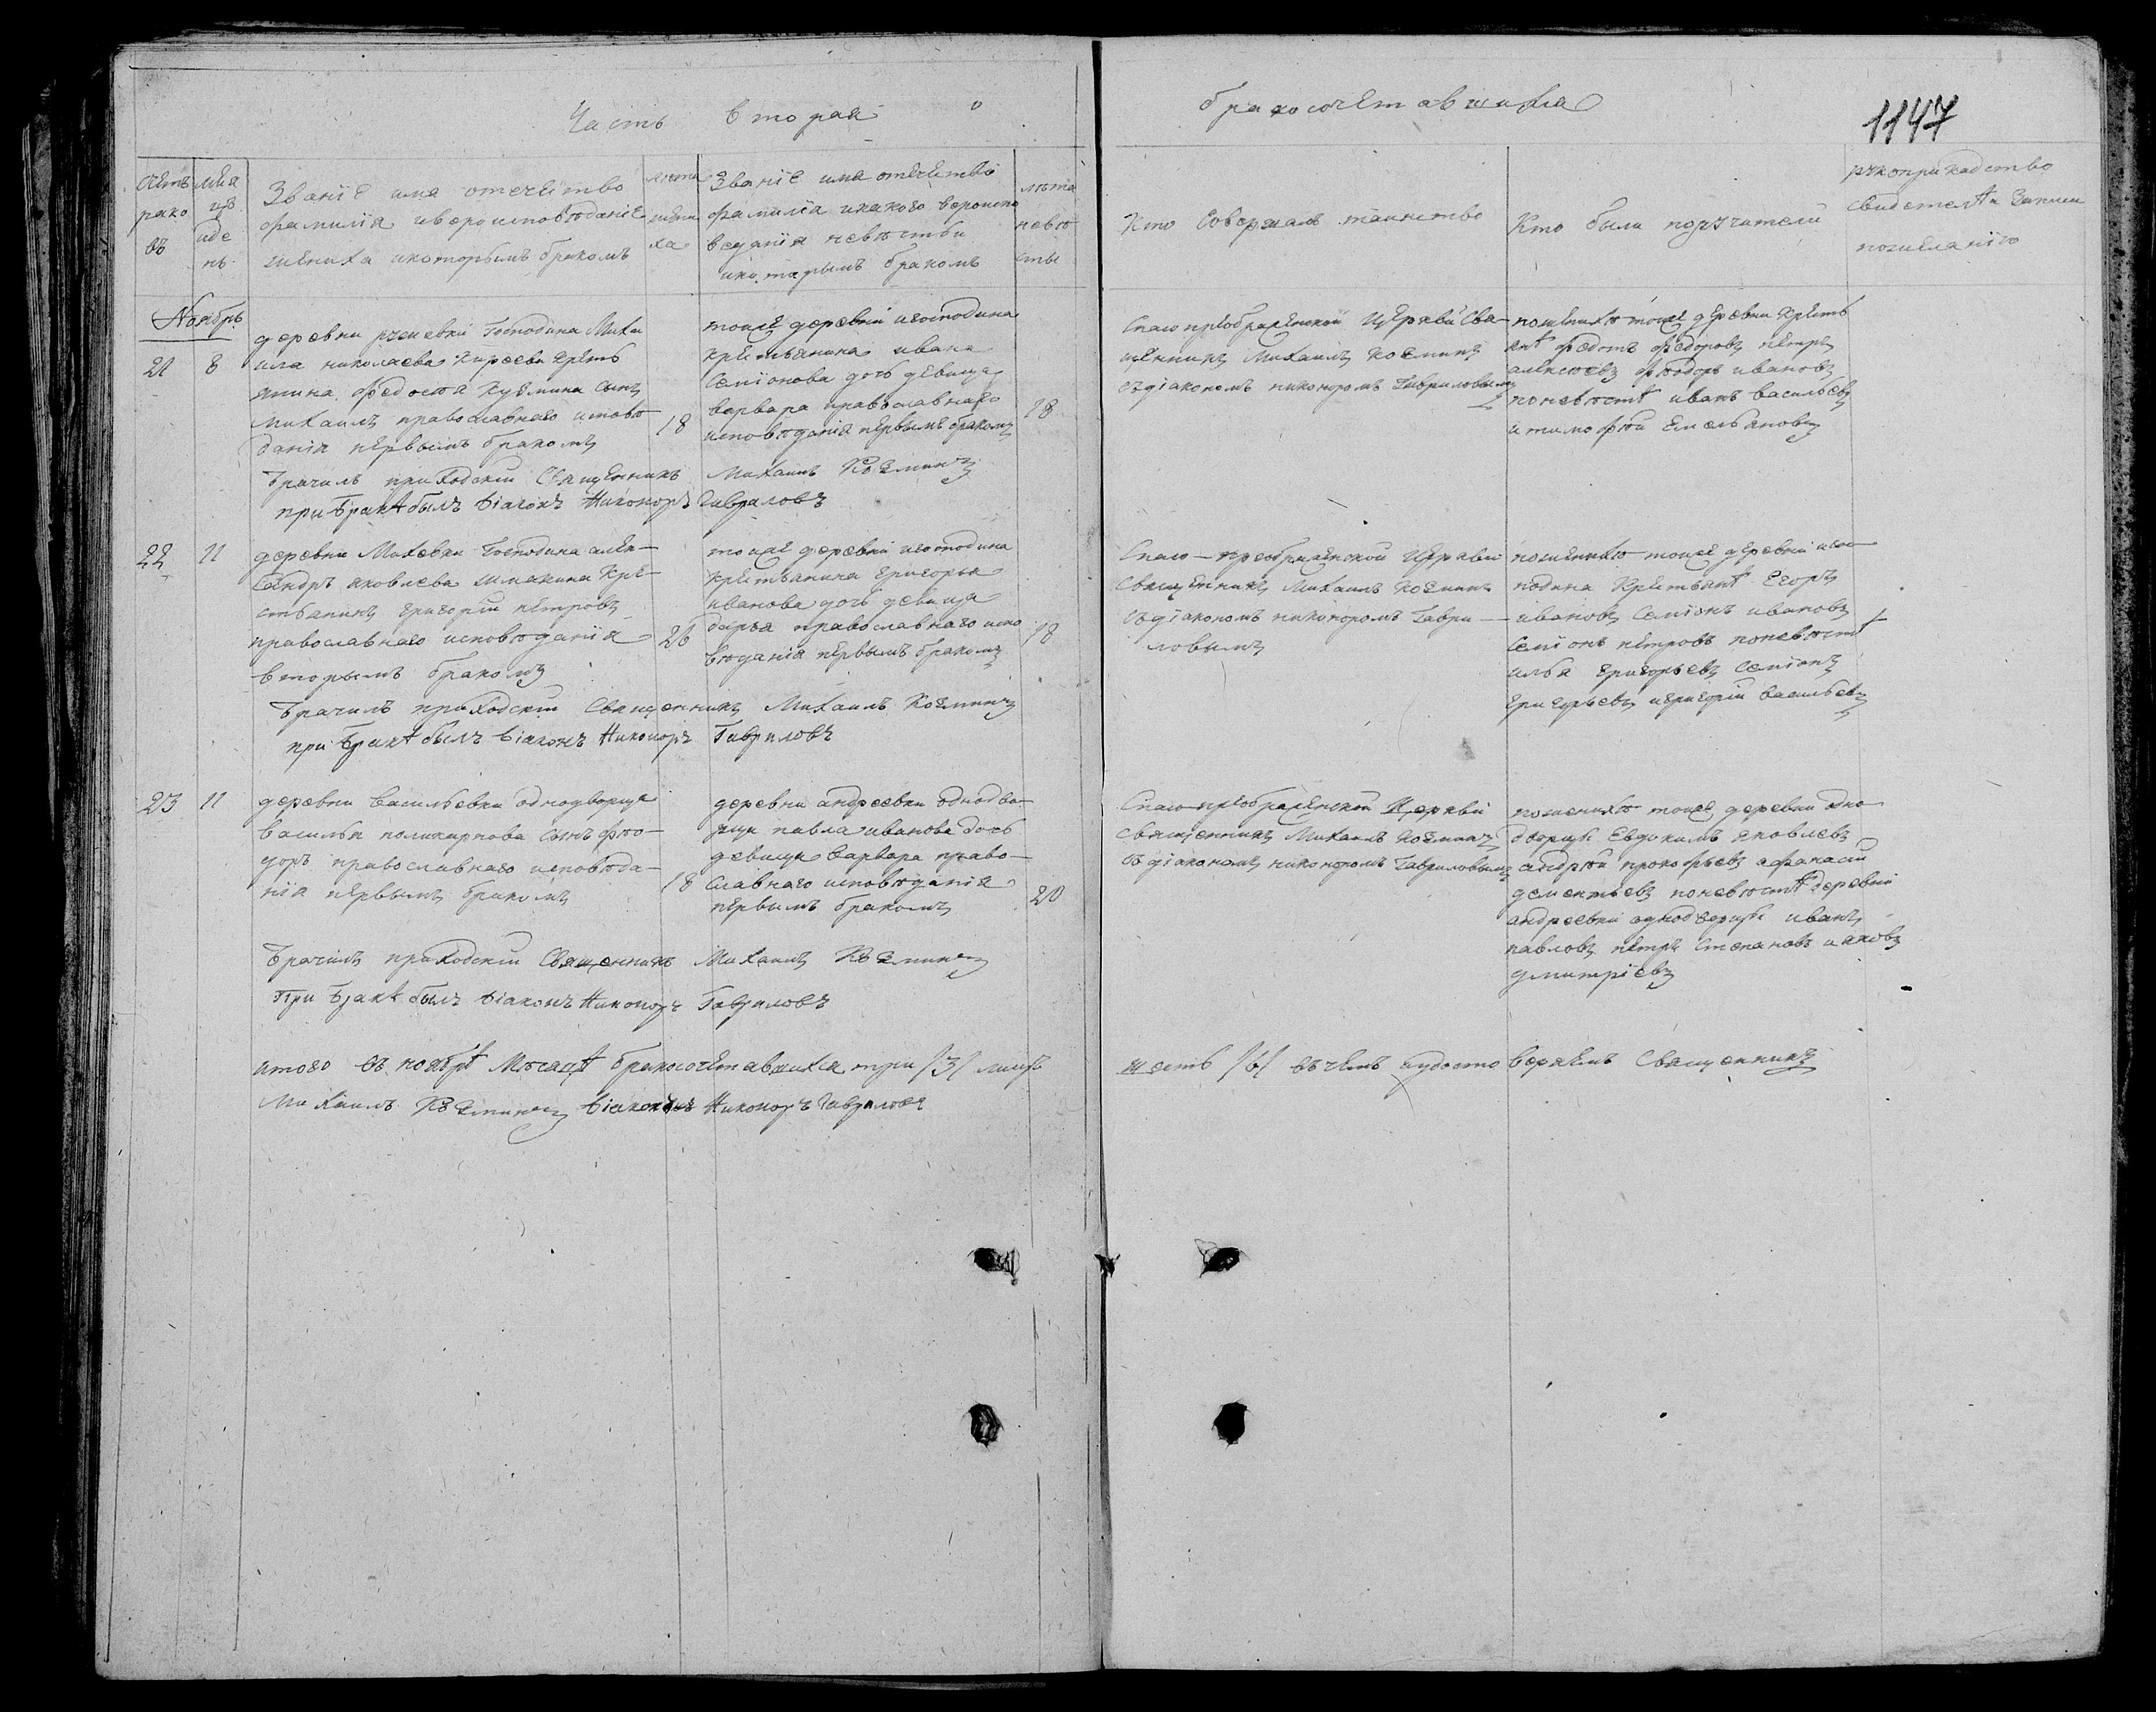 Часть вторая о бракосочетавшихся
1147
Счетъ браковъ
Месяцъ и день
Званіе имя отечество
фамилія и вероисповѣданіе
жениха и которымъ бракомъ
лета жениха
Званіе имя отечество
фамилія и какого вероиспо
веданія невѣсты
и которымъ бракомъ
лѣта невѣсты
Кто Совершалъ таинство
Кто были поручители
рукоприкладство
свидетелѣй записи
по желанію
Ноябрь
21
8
деревни Господина Миха
ила николаева Киреева крестъ
янина Федосѣя Кузмина Сынъ
Михаилъ православнаго исповѣ
данія первымъ бракомъ
18
тоиже деревни и господина
крестьянина ивана
Семіонова дочь девица
варвара православнаго
исповѣданія первымъ бракомъ
18
Спасо преображенской Церкви Свя-
щенникъ Михаилъ Козминъ
съ діакономъ никоноромъ Гавриловымъ
по женихѣ тоиже деревни крестъ
янѣ Федотъ Федоровъ петръ
алексѣевъ Фѣодоръ ивановъ
по невѣстѣ иванъ васильевъ
и тимофѣй Емельяновъ
Брачилъ приходскій Священникъ Михаилъ Козминъ
при бракѣ былъ діаконъ Никоноръ Гавриловъ
22
11
деревни Михевки Господина алек-
сандръ яковлева шмакина Кре-
стьянинъ григорій петровъ
православнаго исповѣданія
вторымъ бракомъ
26
тоиже деревни и господина
крестьянина григорья
иванова дочь девица
дарья православнаго испо
вѣданія первымъ бракомъ
18
Спасо-преображенской Церкви
Священникъ Михаилъ Козминъ
съ діакономъ никоноромъ Гаври-
ловымъ
по женихѣ тоиже деревни и гос-
подина Крестьянѣ Егоръ
ивановъ Семіонъ ивановъ
Семіонъ петровъ по невѣстѣ
илья григорьевъ Семіонъ
григорьевъ и григорій васильевъ
Брачилъ приходскій Священникъ Михаилъ Козминъ
при бракѣ былъ діаконъ Никоноръ Гавриловъ
23
11
деревни васильевки однодворца
василья поликарпова Сынъ фѣо-
доръ православнаго исповѣда-
нія первымъ бракомъ
18
деревни андреевки однодво-
рца павла иванова дочь
девица варвара право-
славнаго исповѣданія
первымъ бракомъ
20
Спасо-преображенской Церкви
Священникъ Михаилъ Козминъ
съ діакономъ никоноромъ Гавриловымъ
по женихѣ тоиже деревни одно
дворцы Евдокимъ яковлевъ
андрѣй прокофьевъ афанасій
дементьевъ по невѣстѣ деревни
андреевки однодворцы иванъ
павловъ петръ Степановъ и яковъ
дмитріевъ
Брачилъ приходскій Священникъ Михаилъ Козминъ
При бракѣ былъ діаконъ Никоноръ Гавриловъ
итого въ ноябрѣ Мѣсяцѣ бракосочетавшихся три /3/ лицъ шесть /6/ въ чемъ и удостоверяемъ Священникъ
Михаилъ Козминъ діаконъ Никоноръ Гавриловъ